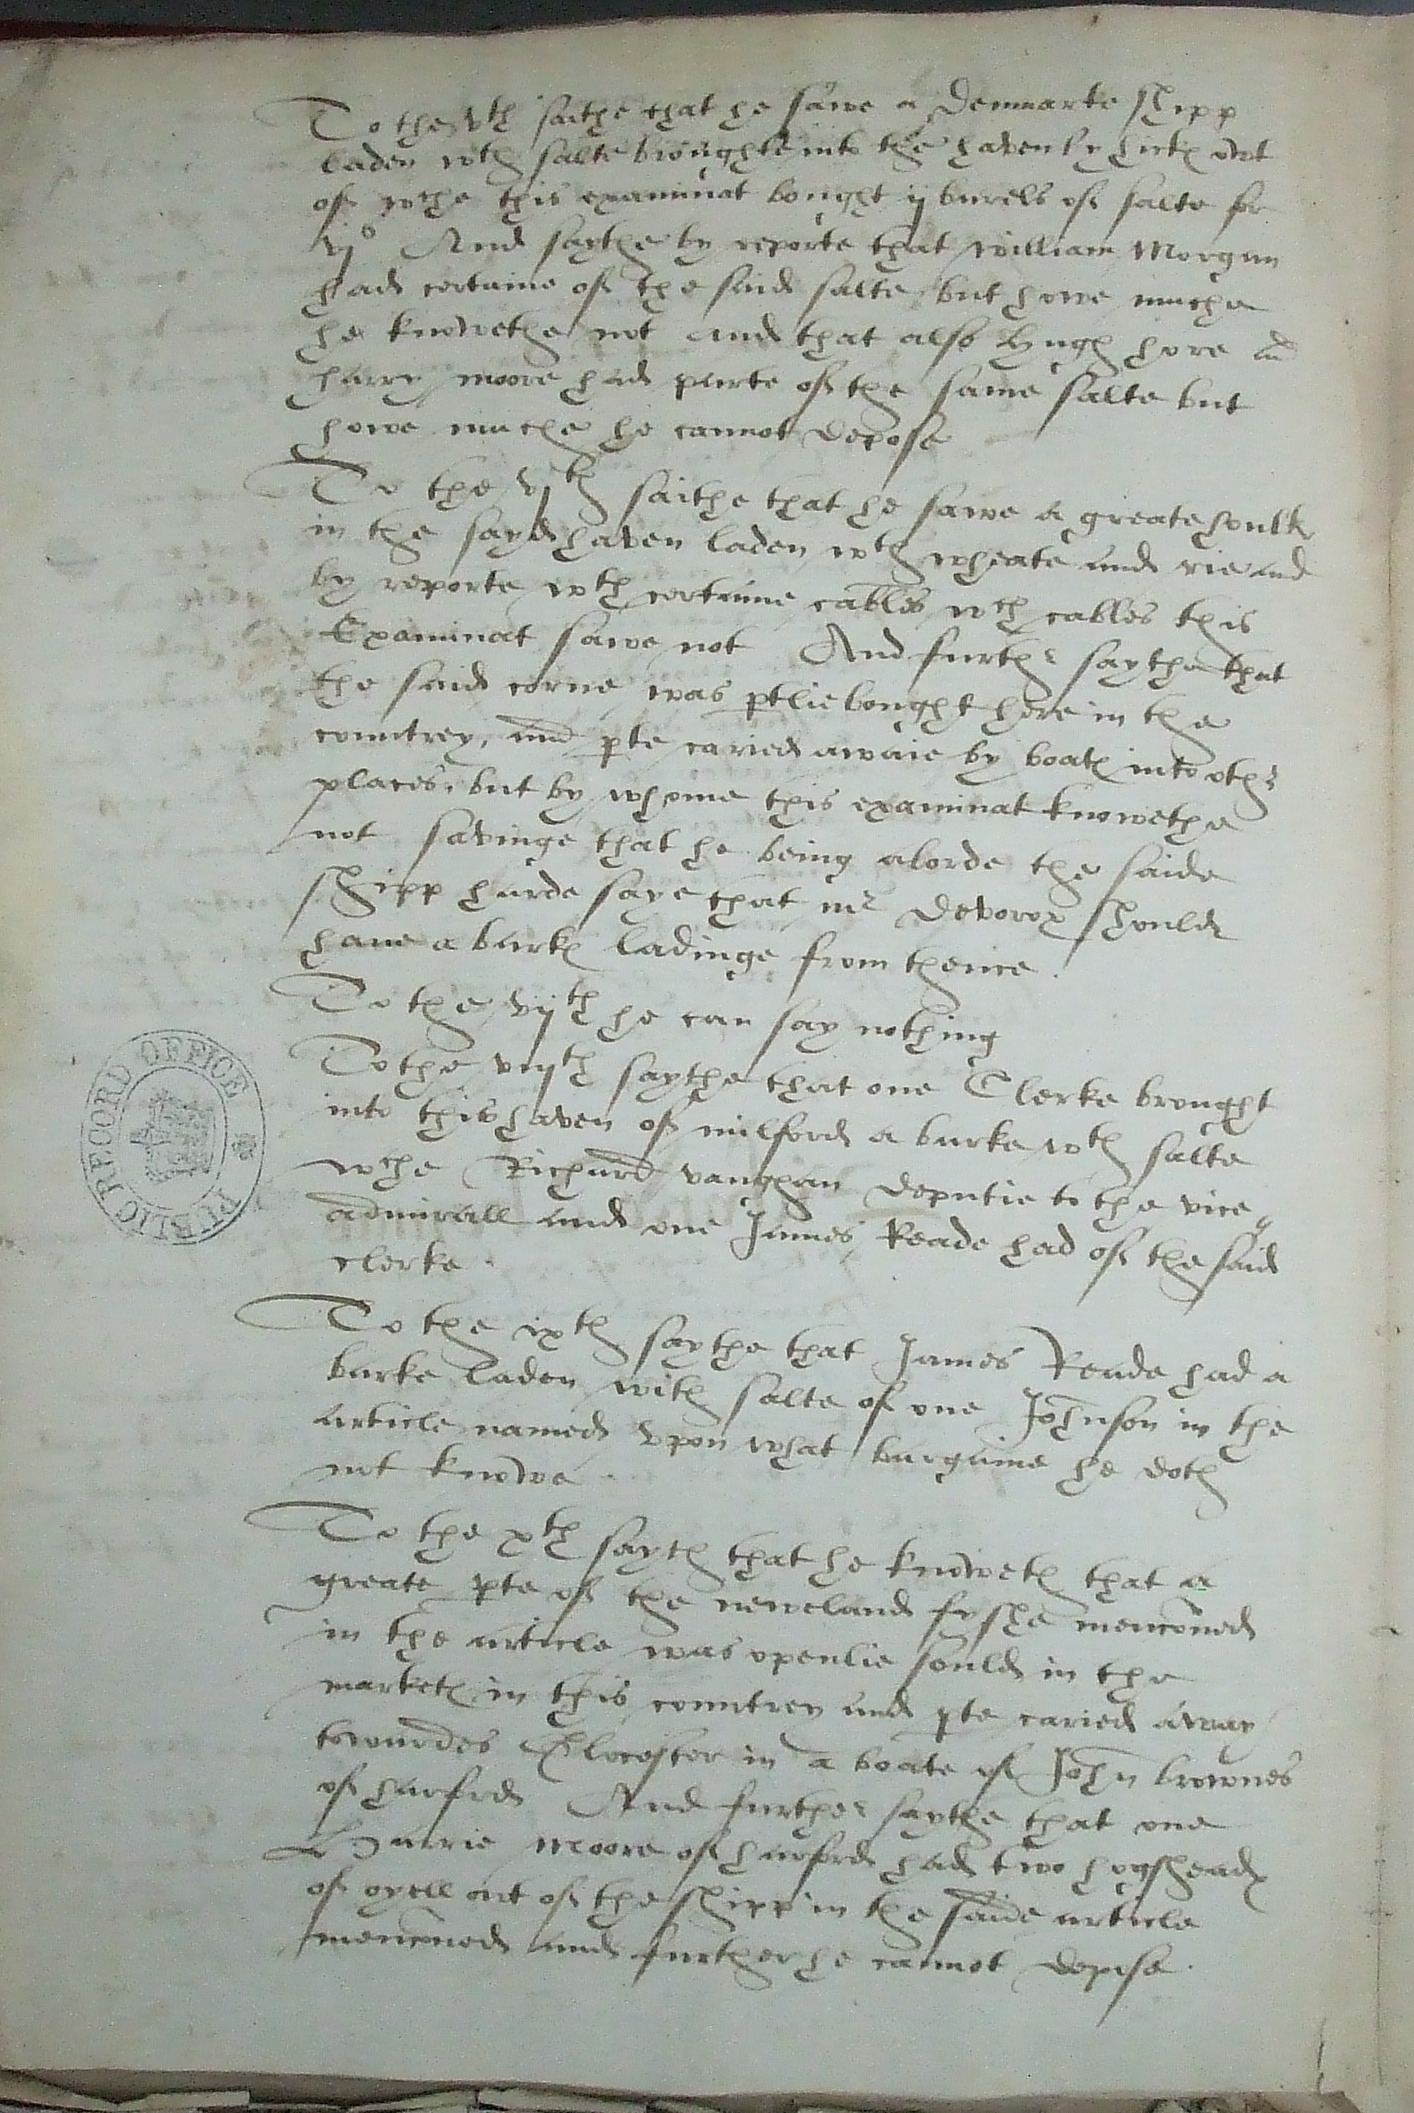 To the vth saithe that he sawe a Denmarke shipp
laden wth salte broughte into the haven by hicks owt
of wche this examinat bought ij barels of salte for
vjs And saythe by reporte that william Morgan
had certaine of the said salte but howe muche
he knowethe not And that also Hugh hore and
harry moore had parte of the same salte but
howe muche he cannot depose
To the vjth saithe that he sawe a greate houlk
in the sayd haven laden wth wheate and rie and
by reporte wth certaine cables wch cables this
Examinat sawe not And further saythe that
the said corne was ptlie bought here in the
countrey, and pte caried awaie by boats into other
places, but by whome this examinat knowethe
not savinge that he being aborde the saide
shipp harde saye that mr Deverox should
have a bark ladinge from thence.
To the vijth he can say nothing
To the viijth saythe that one Clerke brought
into this haven of milford a barke wth salte
wche Richard vaughan deputie to the vice
admirall and one James Reade had of the said
clerke.
To the ixth saythe that James Reade had a
barke laden with salte of one Johnson in the
article named vpon what bargaine he doth
not knowe.
To the xth sayth that he knoweth that a
greate pte of the newland fyshe mencioned
in the article was openlie sould in the
markets in this countrey and pte caried away
towardes Glocester in a boate of John brownes
of harford And further saythe that one
Harrie Moore of harford had two hogsheads
of oyell out of the shipp in the saide article
mencioned and further he cannot depose.
PUBLIC RECORD OFFICE